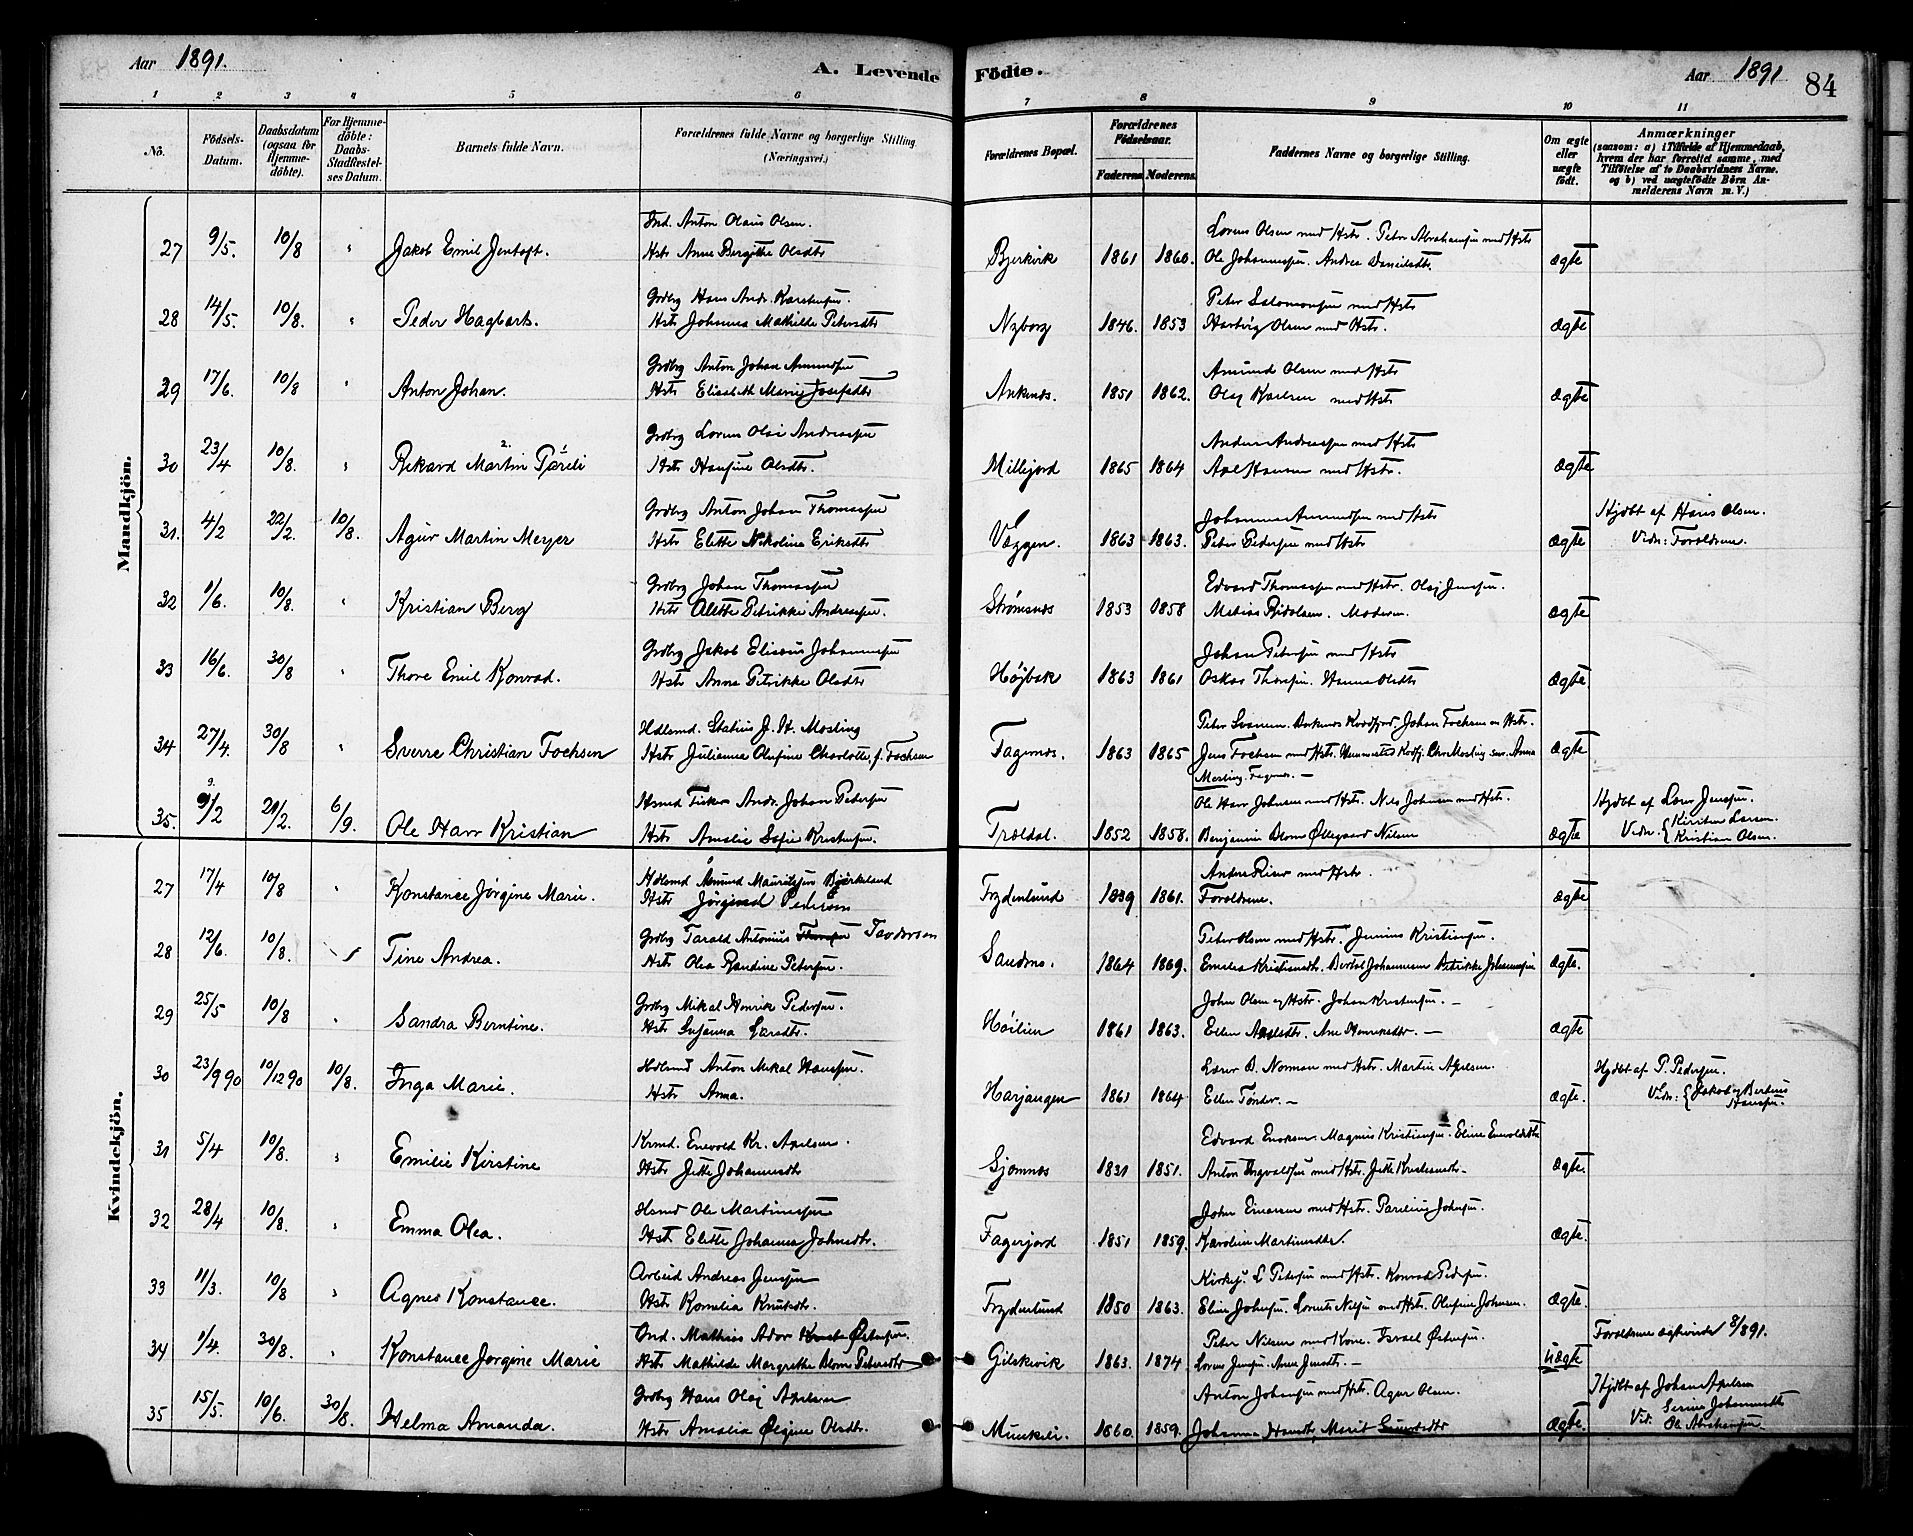 Aar 1891. A. Levende Födte. Aar 1891 84
1 2 3 4 5 6 7 8 9 10 11
No. Födsels-Datum. Daabsdatum (ogsaa for Hjemmedöbte). For Hjemmedöbte: Daabs-Stadfæstelses Datum. Barnets fulde Navn. Forældrenes fulde Navne og borgerlige Stilling (Næringsvei.) Forældrenes Bopæl. Forældrenes Födselsaar. Faderens Moderens. Faddernes Navne og borgerlige Stilling. Om ægte eller uægte födt. Anmærkninger (saasom: a) i Tilfælde af Hjemmedaab, hvem der har forrettet samme, med Tilföielse af to Daabsvidners Navne. og b) ved uægtefödte Börn Anmelderens Navn m. V.)
Mandkjön.
Ind. Anton Olaus Olsen. Lorens Olsen med Hstr. Peter Abrahamsen med Hstr
27 9/5. 10/8 " Jakob Emil Jentoft. Hstr Anne Bergitte Olsdtr Bjerkvik 1861 1860. Ole Johannessen. Andrea Danielsdtr. ægte
Grdbrg Hans Andr. Karstensen. Peter Salomonsen med Hstr
28 14/5. 10/8. " Peder Hagbart. Hstr Johanna Mathilde Petersdtr Nyborg 1846. 1853 Hartvig Olsen med Hstr. Ægte
Grdbrg Anton Johan Amundsen Amund Olsen med Hstr
29 17/6. 10/8 " Anton Johan. Hstr Elisabeth Marie Josefsdtr Ankenæs. 1851 1862. Olaj Karlsen med Hstr Ægte
Grdbrg Lorens Olai Andreassen Anders Andreassen med Hstr
30 23/4 10/8. " Rikard Martin Hstr Hansine Olsdtr. Millejord 1865 1864 Axel Hansen med Hstr. Ægte
Grdbrg Anton Johan Thomassen Johannes Amundsen med Hstr Hjdbt af Hans Olsen.
31. 4/2 22/2. 10/8. Agur Martin Meyer Hstr Elitte Nikolina Eriksdtr Væggen. 1863 1863. Peter Pedersen med Hstr Ægte Vidn: Forældrene.
Grdbrg Johan Thomassen Edvard Thomassen med Hstr. Olaj Jensen.
32 1/6. 10/8. " Kristian Berg Hstr Alette Petrikke Andreassen. Strømsnæs 1853 1858 Matias Moderen. Ægte
Grdbrg Jakob Elisæus Johannessen Johan Petersen med Hstr
33 16/6. 30/8 " Thore Emil Konrad. Hstr Anna Petrikke Olsdtr Højbak 1863 1861 Oskar Thoresen. Hanna Olsdtr Ægte
Hdlsmd. Statius J. H. Mosling Peter Ankenæs Johan Fochsen og Hstr.
34 27/4. 30/8 " Sverre Christian Fochsen Hstr Julianna Olufine Charlotte, f. Fochsen Fagernæs. 1863 1865 Jens Fochsen med Hstr. Chr. Mosling sen. Anna Ægte
Mosling. Fagernæs. —
Hsmd Fisker Andr. Johan Pedersen Ole Johnsen med Hstr. Nils Johnsen med Hstr. Hjdbt af Lars Jensen.
35. 9/2 29/2. 6/9. Ole Harr Kristian Hstr Amalie Sofie Kristensen. Trældal. 1852 1858. Benjamin Blom Øllegaard Nilsen Ægte Vidn. { Kirsten Larsen. Kristian Olsen.
Kvindekjön.
Hdlsmd Amund Mauritssen Bjørkelund med Hstr.
27 17/4 10/8 " Konstance Jørgine Marie. Hstr Pedersen Frydenlund 1839 1861. Forældrene. Ægte
Grdbrg Tarald Antonius Tandersen Peter Olsen med Hstr. Junius Kristensen.
28 12/6. 10/8. Tine Andrea. Hstr Olea Randine Petersen. Sandmo. 1864 1869. Emelia Kristiansdtr. Bertol Johannessen Petrikke Johannessen Ægte.
Grdbrg Mikal Henrik Pedersen. John Olsen og Hstr. Johan Kristensen. —
29 25/5 10/8 " Sandra Berntine. Hstr Susanna Larsdtr. Høilien 1861 1863. Ellen Axelsdtr. Ane Henriksdtr. — Ægte
Hdlsmd Anton Mikal Hansen. Lærer D. Norman med Hstr. Martin Axelsen. Hjdbt af P. Pedersen.
30 23/9 90 10/12 90 10/8. Inga Marie. Hstr Anna. Harjangen 1861 1864 Ellen Tønder. — Ægte. Vidn: { Jakob og Bertine Hansen.
Krmd. Enevold Kr. Axelsen. Edvard Magnus Kristensen. Eline Enevoldsdtr
31 5/4 10/8. " Emilie Kirstine Hstr Jette Johannesdtr Sjomnæs 1831 1851. Anton Ingvaldsen med Hstr. Jette Kristensdtr. Ægte.
Hsmd Ole Martinussen John Einarsen med Hstr. Johnsen.
32 28/4 10/8. " Emma Olea. Hstr Elitte Johanna Johnsdtr. Fagerjord 1851 1859. Karoline Martinusdtr. Ægte.
Arbeid Andreas Jenssen L. Petersen med Hstr. Konrad Pedersen.
33 11/3. 10/8 " Agnes Konstance. Hstr Kornelia Knutsdtr. Frydenlund 1850 1863. Eline Johnsen. Lorents Nilsen med Hstr. Olufine Johnsen. Ægte.
Ind. Mathias Ador Østensen. Peter Nilsen med Kone. Israel Østensen. Forældrene ægteviede 8/8 91.
34 1/4. 30/8. " Konstance Jørgine Marie Hstr Mathilde Margrethe Blom Petersdtr Gilskevik 1863. 1874 Lorens Jensen. Ane Jensdtr. — Uægte
Grdbrg Hans Olaj Axelsen Anton Johansen med Hstr. Agur Olsen. Hjdbt af Johan Axelsen
35 15/5. 10/6. 30/8. Helma Amanda. Hstr Amalia Olsdtr. Munkeli. 1860. 1859. Johanna Hansdtr, Marit Ægte. Vid. Johannesdtr Ole Abrahamsen